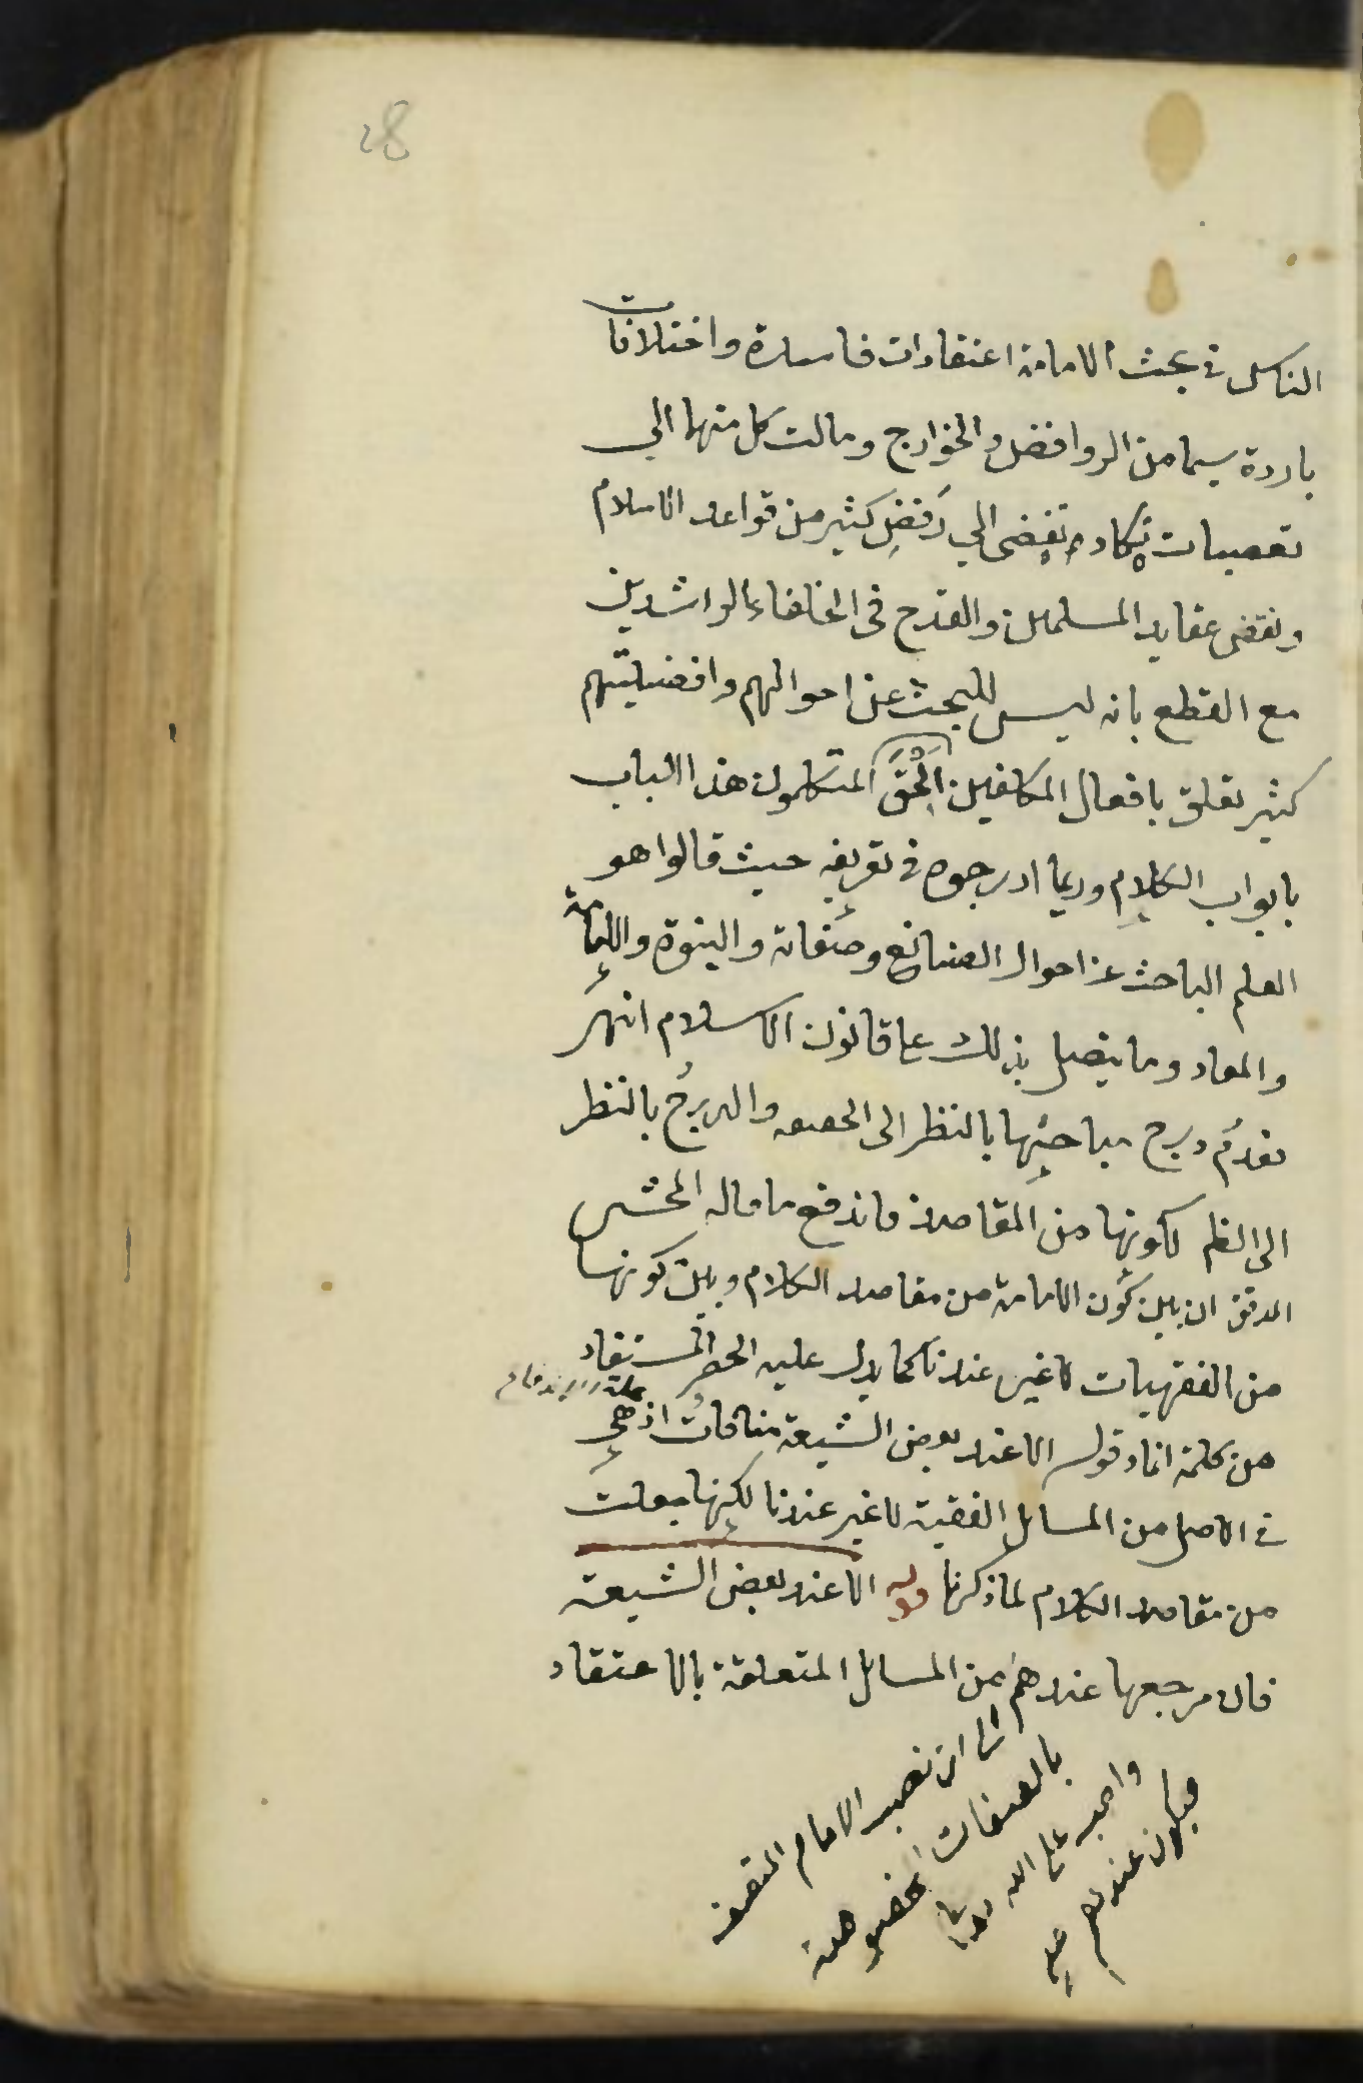 28
الناس في بحث الامامة اعتقادات فاسدة واختلافات
باردة سيما من الروافض والخوارج ومالت كل منها الي
تعصبات تكاد تفضي الي رفض كثير من قواعد الاسلام
ونقض عقايد المسلمين والقدح في الخلفاء الراشدين
مع القطع بانه ليس للبحث عن احوالهم وافضليتهم
كثير تعلق بافعال المكلفين الحق المتكلمون هذا الباب
بابواب الكلام وربما ادرجوه في تعريفه حيث قالوا هو
العلم الباحث عن احوال الصانع وصفاته والنبوة والامامة
والمعاد وما يتصل بذلك علي قانون الاسلام انتهى
مباحثها بالنظر الى الحقيقه والدرج بالنظر
الى الظم لكونها من المقاصد فاندفع ما قاله المحشى
المدقق ان بين كون الامامة من مقاصد الكلام وبين كونها
من الفقهيات لا غير عندنا كما يدل عليه الحصر المستفاد
من كلمة انما وقوله الا عند بعض الشيعة منافات اذ هي
في الاصل من المسايل الفقية لا غير عندنا لكنها جعلت
من مقاصد الكلام لما ذكرنا قوله الا عند بعض الشيعة
فان مرجعها عندهم من المسايل المتعلقة بالاعتقاد
الى ان نصب الامام المتصف
بالصفات المخصوصة
واجب على الله تعالى
فيكون عندهم